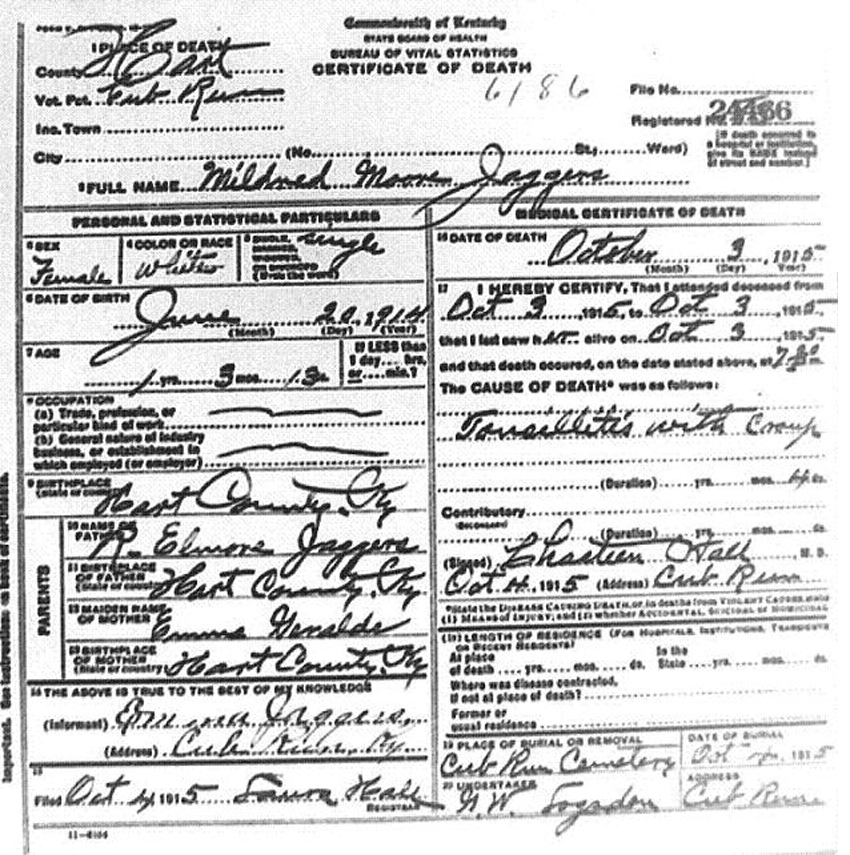 Commonwealth of Kentucky
STATE BOARD OF HEALTH
BUREAU OF VITAL STATISTICS
CERTIFICATE OF DEATH
1 PLACE OF DEATH
County Hart
Vot. Pct. Cub Run
Inc. Town
City (No. St.; Ward)
6186
File No.
Registered No. 24466
[If death occurred in a hospital or institution, give its NAME instead of street and number.]
2 FULL NAME Mildred Moore Jaggers
PERSONAL AND STATISTICAL PARTICULARS
3 SEX Female
4 COLOR OR RACE White
5 SINGLE, MARRIED, WIDOWED, OR DIVORCED (Write the word) single
6 DATE OF BIRTH
June 20 1914
(Month) (Day) (Year)
7 AGE
1 yrs. 3 mos. 13 ds
If LESS than 1 day.... hrs. or.... min.?
8 OCCUPATION
(a) Trade, profession, or particular kind of work
(b) General nature of industry business, or establishment in which employed (or employer)
9 BIRTHPLACE
(State or country) Hart County, Ky
PARENTS
10 NAME OF FATHER R. Elmore Jaggers
11 BIRTHPLACE OF FATHER (State or country) Hart County, Ky
12 MAIDEN NAME OF MOTHER Emma
13 BIRTHPLACE OF MOTHER (State or country) Hart County, Ky
14 THE ABOVE IS TRUE TO THE BEST OF MY KNOWLEDGE
(Informant) Jaggers
(Address) Cub Run, Ky
15
Filed Oct 4, 1915 Laura Hall
REGISTRAR
11-6164
MEDICAL CERTIFICATE OF DEATH
16 DATE OF DEATH
October 3, 1915
(Month) (Day) Year)
17 I HEREBY CERTIFY, That I attended deceased from
Oct 3 1915, to Oct 3, 1915
that I last saw her alive on Oct 3, 1915
and that death occured, on the date stated above, at 7 30 m
The CAUSE OF DEATH* was as follows:
Tonsillitis with Croup
(Duration) yrs. mos. ds.
Contributory
(SECONDARY)
(Duration) yrs. mos. ds.
(Signed) Chasteen Hall M. D.
Oct 4, 1915 (Address) Cub Run
*State the DISEASE CAUSING DEATH, or, in deaths from VIOLENT CAUSES, state
(1) MEANS OF INJURY; and (2) whether ACCIDENTAL, SUICIDAL or HOMICIDAL
(18) LENGTH OF RESIDENCE (FOR HOSPITALS, INSTITUTIONS, TRANSIENTS
OR RECENT RESIDENTS)
At place of death .... yrs.... mos. ds. In the State .... yrs.... mos. ds.
Where was disease contracted,
if not at place of death?
Former or
usual residence
19 PLACE OF BURIAL OR REMOVAL
Cub Run Cemetery
DATE OF BURIAL
Oct 4, 1915
20 UNDERTAKER
G. W. Logsdon
ADDRESS
Cub Run